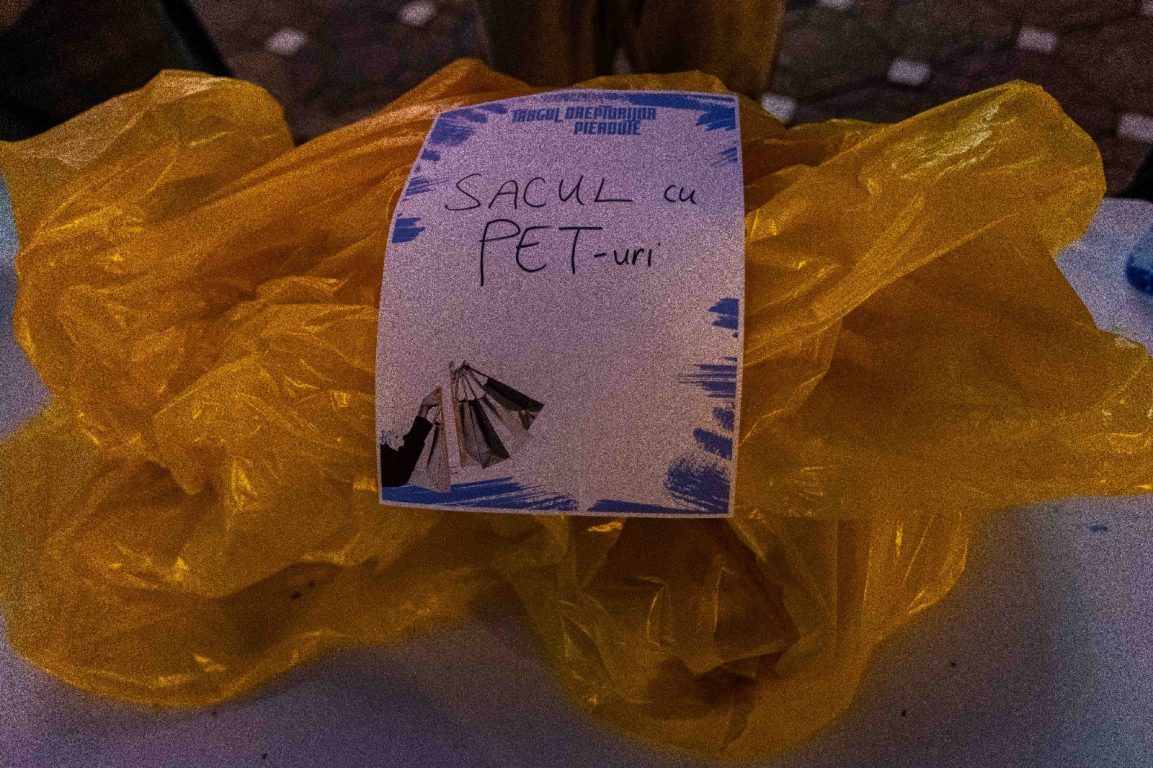 TARGUL DREPTURILOR
PIERDUTE
SACUL cu
PET-uri